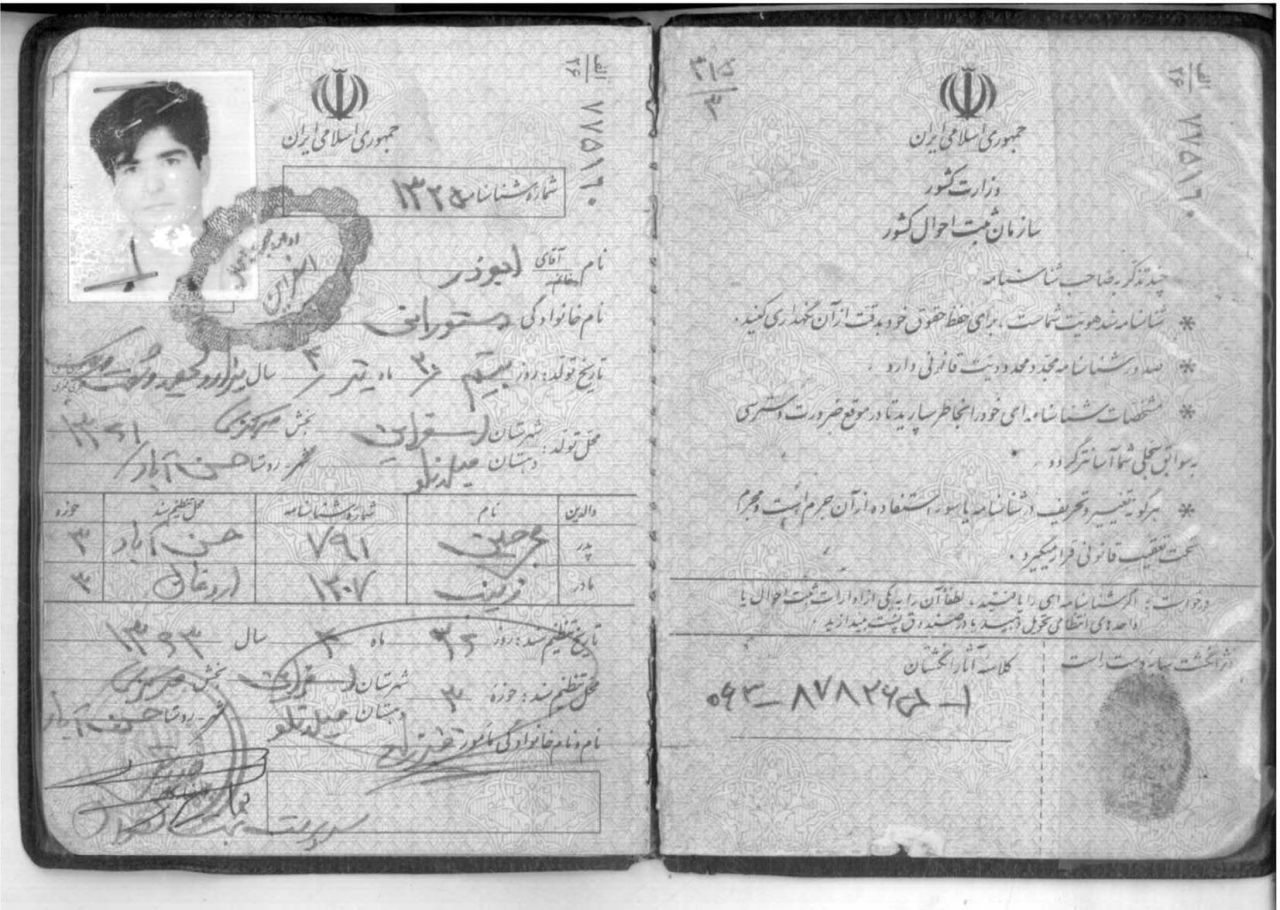 الف
۲۶
۷۷۵۱۹۰
جمهوری اسلامی ایران
وزارت کشور
سازمان ثبت احوال کشور
چند تذکر به صاحب شناسنامه
* شناسنامه سند هویت شماست ، برای حفظ حقوق خود بدقت از آن نگهداری کنید .
* صدور شناسنامه مجدد محدودیت قانونی دارد .
* مشخصات شناسنامه‌ای خود را بخاطر بسپارید تا در موقع ضرورت دسترسی
به سوابق سجلی شما آسانتر گردد .
* هرگونه تغییر و تحریف در شناسنامه یا سوء استفاده از آن جرم است و مجرم
تحت تعقیب قانونی قرار میگیرد .
درخواست : اگر شناسنامه‌ای را یافتید ، لطفاً آن را به یکی از ادارات ثبت احوال یا
واحدهای انتظامی تحویل دهید یا در صندوق پست بیندازید .
اثر انگشت سبابه دست راست
کلاسه آثار انگشتان
الف
۲۶
۷۷۵۱۹۰
جمهوری اسلامی ایران
شماره شناسنامه ۱۳۲۵
نام آقای ابوذر
نام خانوادگی دستورانی
تاریخ تولد : روز بیستم ۲۰ ماه تیر ۴ سال یکهزار و سیصد و شصت و یک
۱۳۶۱
محل تولد : شهرستان اسفراین بخش مرکزی
دهستان میلانلو شهر - روستا حسن آباد
والدین نام شماره شناسنامه محل تنظیم سند حوزه
پدر ۷۹۱ حسن آباد ۳
مادر زینب ۱۳۰۷ اردغان ۳
تاریخ تنظیم سند : روز ۲۶ ماه ۴ سال ۱۳۶۳
محل تنظیم سند : حوزه ۳ شهرستان اسفراین بخش مرکزی
دهستان میلانلو شهر - روستا حسن آباد
نام و نام خانوادگی مأمور